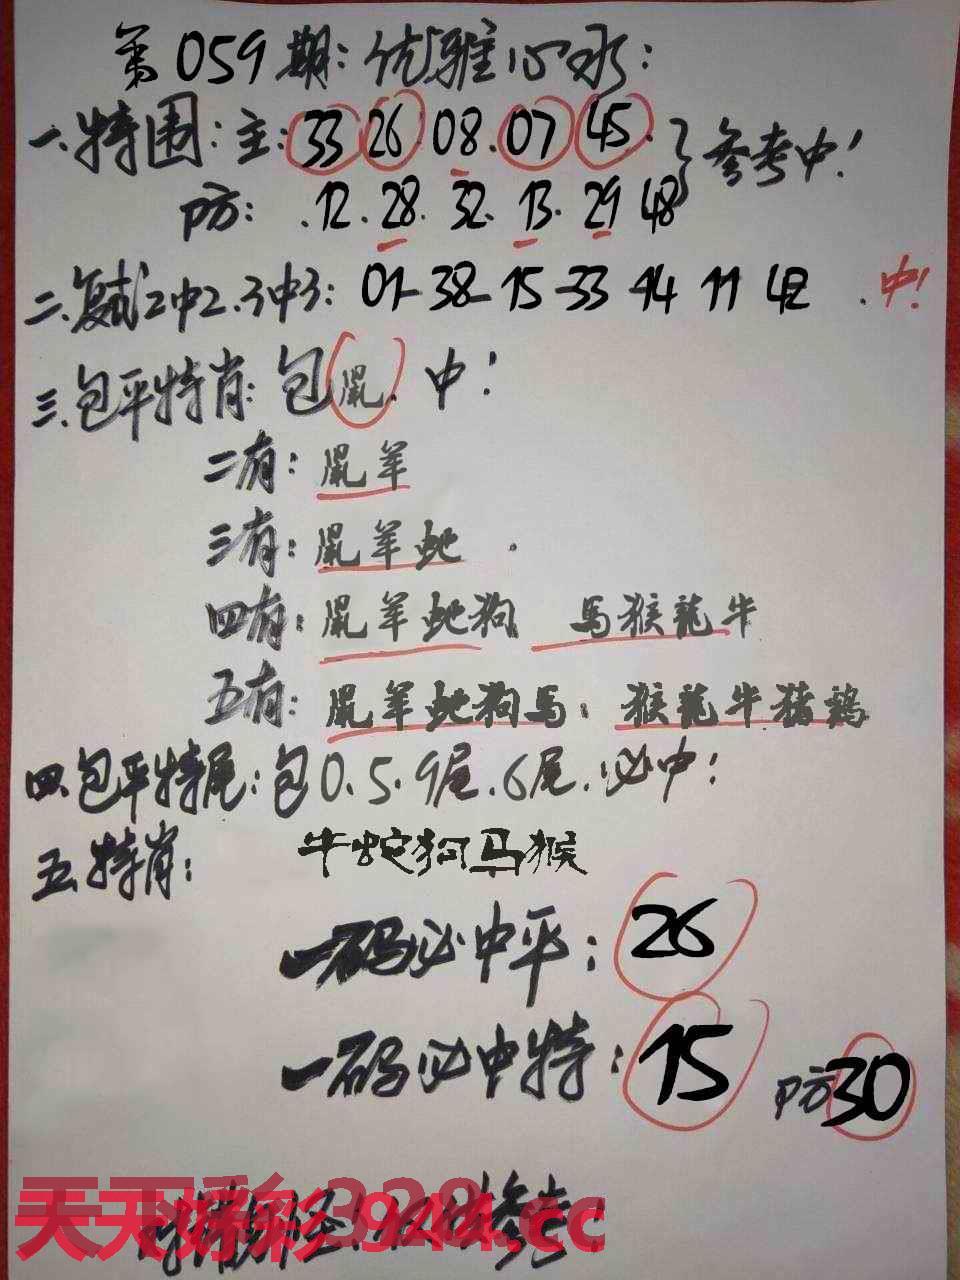 第059期:优雅心水:
一.特围:主:33 26 08.07 45.参考中!
防:.12.28.32.13.29 48
二.复式2中2.3中3:01-38-15-33-14 11 42.中!
三.包平特肖:包鼠.中!
二有:鼠羊
三有:鼠羊蛇.
四有:鼠羊蛇狗 馬猴龍牛
五有:鼠羊蛇狗馬:猴龍牛猪鷄
四.包平特尾:包0.5.9尾.6尾.必中!
五.特肖:牛蛇狗马猴
一码必中平:26
一码必中特:15 防30
天天好彩 3944.cc
参考